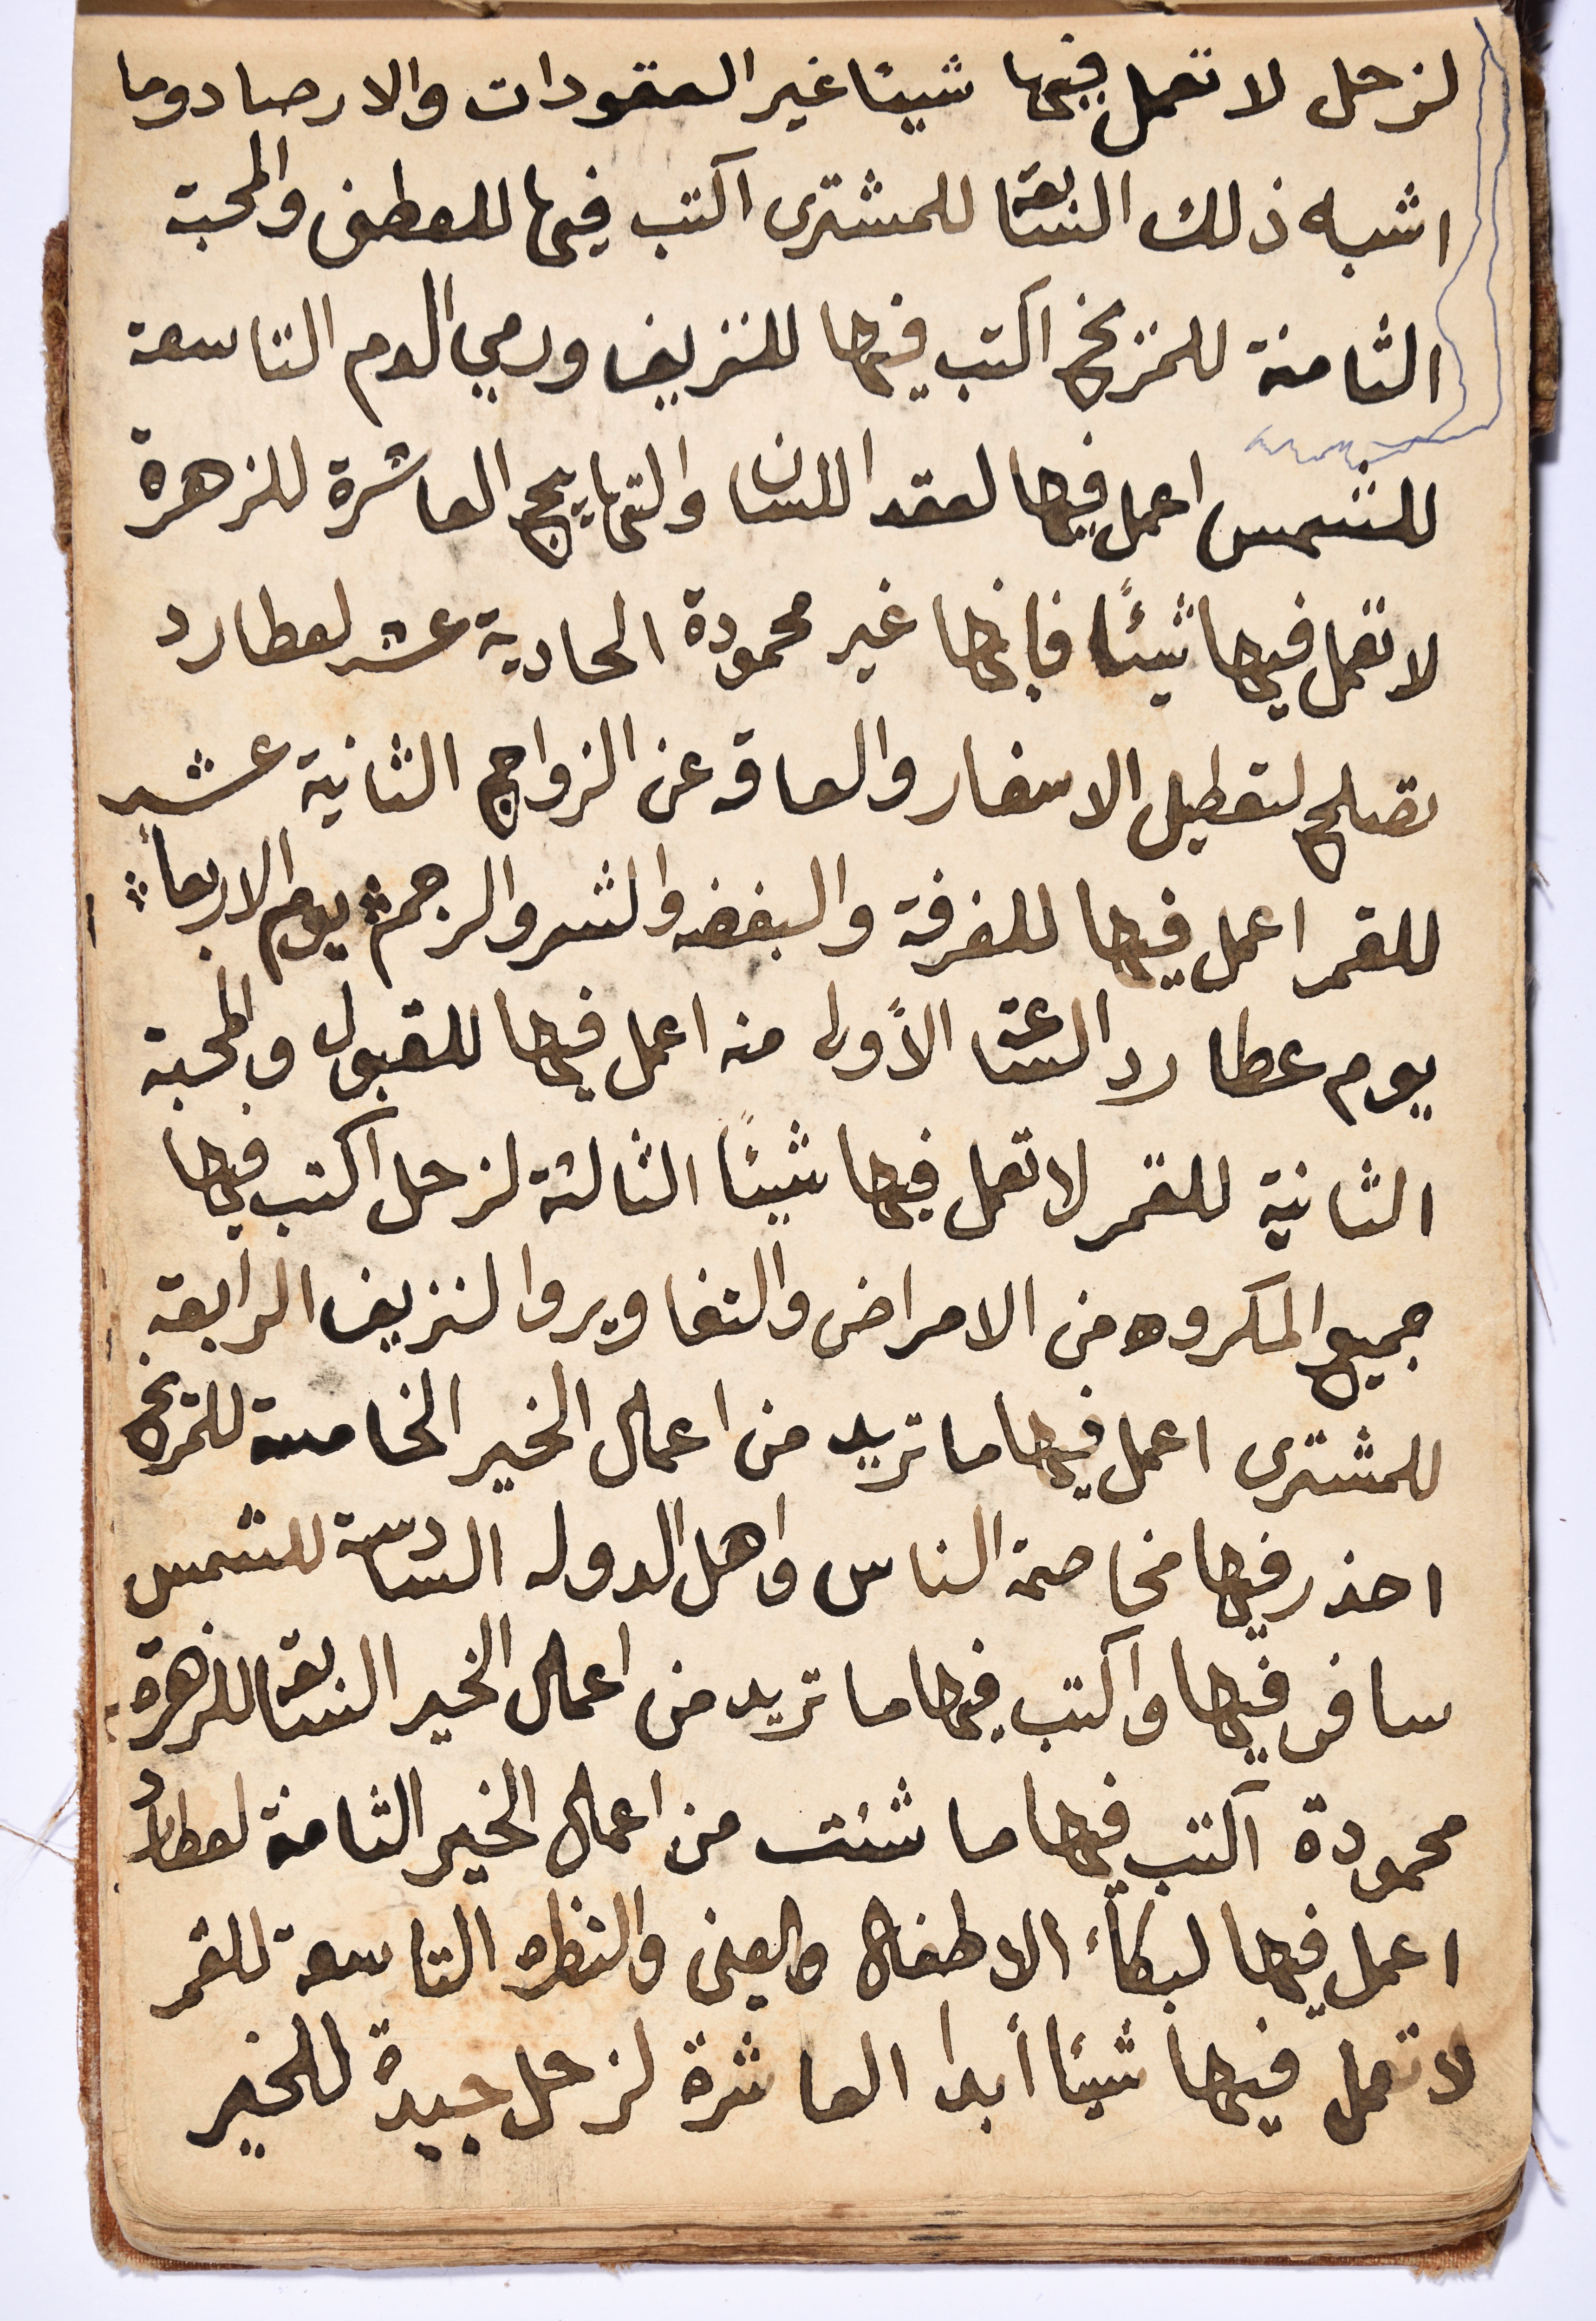 لزحل لا تعمل فيها شيئا غير العقودات والارصاد وما
اشبه ذلك السابعة للمشترى اكتب فيها للعطف والمحبة
الثامنة للمزيخ اكتب فيها للنزيف ورمي الدم التاسعة
للشمس اعمل فيها لعقد اللسان والتهاييج العاشرة للزهرة
لا تعمل فيها شيئًا فانها غير محمودة الحادية عشر لعطارد
تصلح لتعطيل الاسفار والعاقه عن الزواج الثانية عشر
للقمر اعمل فيها للفرقة والبغضه والشر والرجم يوم الاربعاء
يوم عطارد الساعة الأولى منه اعمل فيها للقبول والمحبة
الثانية للقمر لا تعمل فيها شيئًا الثالثة لزحل اكتب فيها
جميع المكروه من الامراض والتغاوير والنزيف الرابعة
للمشترى اعمل فيها ما تريد من اعمال الخير الخامسة للمريخ
احذر فيها مخاصمة الناس واهل الدوله السادسة للشمس
سافر فيها واكتب فيها ما تريد من اعمال الخير السابعة للزهرة
محمودة اكتب فيها ما شئت من اعمال الخير الثامنة لعطارد
اعمل فيها لبكاء الاطفال والعين والنظره التاسعة للقمر
لا تعمل فيها شيئا أبدا العاشرة لزحل جيدة للخير